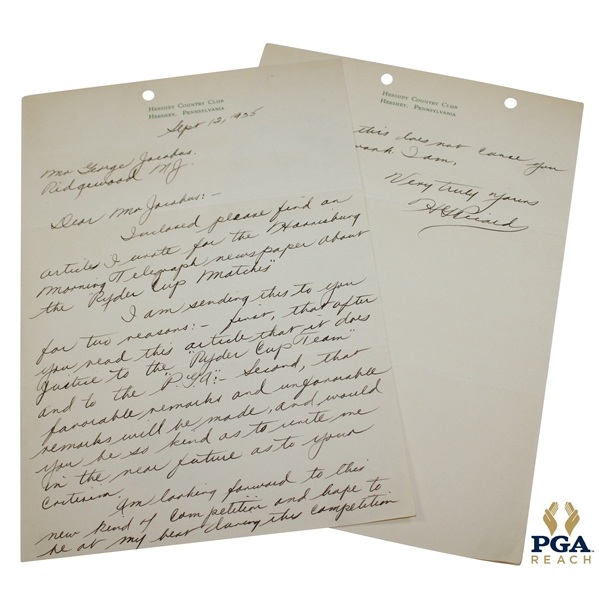 HERSHEY COUNTRY CLUB
HERSHEY, PENNSYLVANIA
Sept 12, 1935
Mr George Jacobus.
Ridgewood N.J.
Dear Mr Jacobus:-
Inclosed please find an
articles I wrote for the Harrisburg
Morning Telegraph newspaper about
the "Ryder Cup Matches"
I am sending this to you
for two reasons:- first, that after
you read this article that it does
justice to the "Ryder Cup Team"
and to the "P.G.A":- Second, that
favorable remarks and unfavorable
remarks will be made, and would
you be so kind as to write me
in the near future as to your
Criterism.
Am looking forward to this
new kind of competition and hope to
be at my best during this competition
HERSHEY COUNTRY CLUB
HERSHEY, PENNSYLVANIA
this does not cause you
I am,
Very truly yours
H G Picard
PGA
REACH